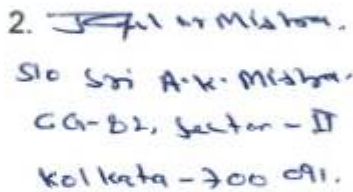 2. Mishra.
S/o Sri A.K. Mishra.
CG-82, Sector - II
Kolkata - 700 091.